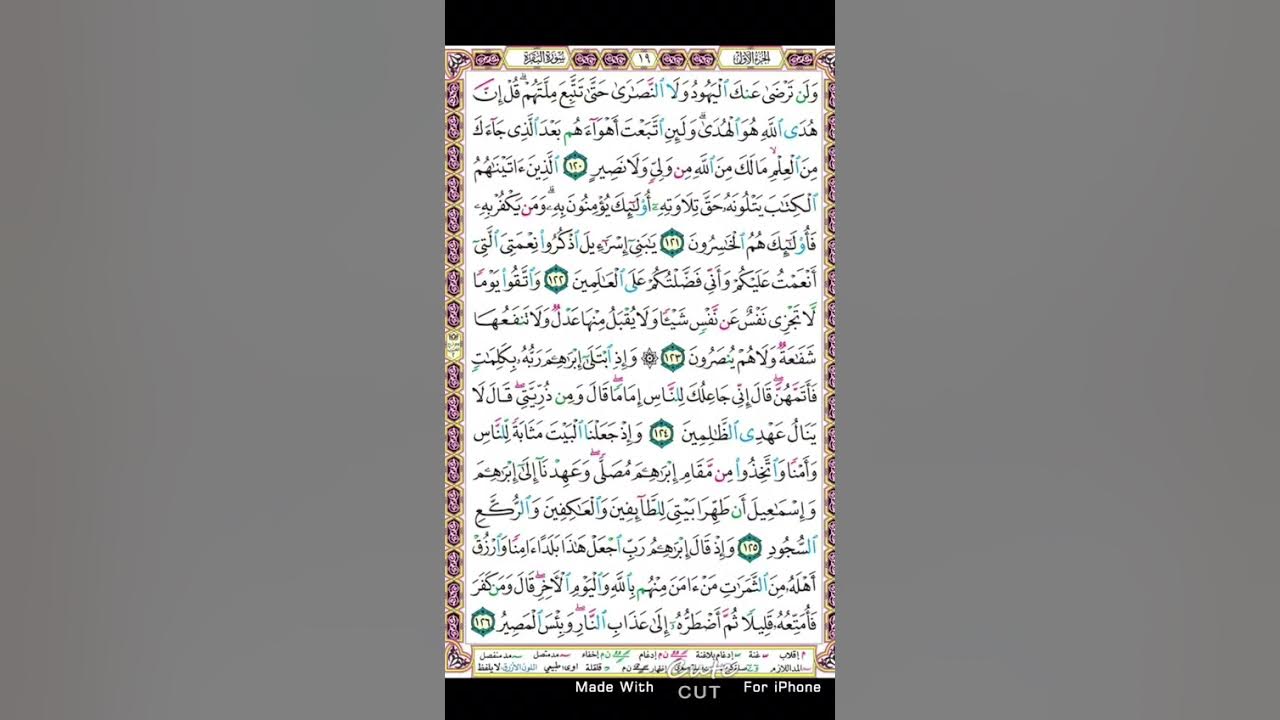 الجزء الأول ١٩ سورة البقرة
وَلَن تَرْضَىٰ عَنكَ ٱلْيَهُودُ وَلَا ٱلنَّصَٰرَىٰ حَتَّىٰ تَتَّبِعَ مِلَّتَهُمْ ۗ قُلْ إِنَّ
هُدَى ٱللَّهِ هُوَ ٱلْهُدَىٰ ۗ وَلَئِنِ ٱتَّبَعْتَ أَهْوَآءَهُم بَعْدَ ٱلَّذِى جَآءَكَ
مِنَ ٱلْعِلْمِ ۙ مَا لَكَ مِنَ ٱللَّهِ مِن وَلِىٍّ وَلَا نَصِيرٍ ١٢٠ ٱلَّذِينَ ءَاتَيْنَٰهُمُ
ٱلْكِتَٰبَ يَتْلُونَهُۥ حَقَّ تِلَاوَتِهِۦٓ أُو۟لَٰٓئِكَ يُؤْمِنُونَ بِهِۦ ۗ وَمَن يَكْفُرْ بِهِۦ
فَأُو۟لَٰٓئِكَ هُمُ ٱلْخَٰسِرُونَ ١٢١ يَٰبَنِىٓ إِسْرَٰٓءِيلَ ٱذْكُرُوا۟ نِعْمَتِىَ ٱلَّتِىٓ
أَنْعَمْتُ عَلَيْكُمْ وَأَنِّى فَضَّلْتُكُمْ عَلَى ٱلْعَٰلَمِينَ ١٢٢ وَٱتَّقُوا۟ يَوْمًا
لَّا تَجْزِى نَفْسٌ عَن نَّفْسٍ شَيْـًٔا وَلَا يُقْبَلُ مِنْهَا عَدْلٌ وَلَا تَنفَعُهَا
شَفَٰعَةٌ وَلَا هُمْ يُنصَرُونَ ١٢٣ ۞ وَإِذِ ٱبْتَلَىٰٓ إِبْرَٰهِـۧمَ رَبُّهُۥ بِكَلِمَٰتٍ
فَأَتَمَّهُنَّ ۖ قَالَ إِنِّى جَاعِلُكَ لِلنَّاسِ إِمَامًا ۖ قَالَ وَمِن ذُرِّيَّتِى ۖ قَالَ لَا
يَنَالُ عَهْدِى ٱلظَّٰلِمِينَ ١٢٤ وَإِذْ جَعَلْنَا ٱلْبَيْتَ مَثَابَةً لِّلنَّاسِ
وَأَمْنًا وَٱتَّخِذُوا۟ مِن مَّقَامِ إِبْرَٰهِـۧمَ مُصَلًّى ۖ وَعَهِدْنَآ إِلَىٰٓ إِبْرَٰهِـۧمَ
وَإِسْمَٰعِيلَ أَن طَهِّرَا بَيْتِىَ لِلطَّآئِفِينَ وَٱلْعَٰكِفِينَ وَٱلرُّكَّعِ
ٱلسُّجُودِ ١٢٥ وَإِذْ قَالَ إِبْرَٰهِـۧمُ رَبِّ ٱجْعَلْ هَٰذَا بَلَدًا ءَامِنًا وَٱرْزُقْ
أَهْلَهُۥ مِنَ ٱلثَّمَرَٰتِ مَنْ ءَامَنَ مِنْهُم بِٱللَّهِ وَٱلْيَوْمِ ٱلْءَاخِرِ ۖ قَالَ وَمَن كَفَرَ
فَأُمَتِّعُهُۥ قَلِيلًا ثُمَّ أَضْطَرُّهُۥٓ إِلَىٰ عَذَابِ ٱلنَّارِ ۖ وَبِئْسَ ٱلْمَصِيرُ ١٢٦
م إقلاب غنة إدغام بلاغنة ن م إدغام ن م إخفاء مد متصل مد منفصل
المد اللازم ن م قلقلة اوى طبيعي اللون الأزرق لا يلفظ
Made With Cute CUT For iPhone